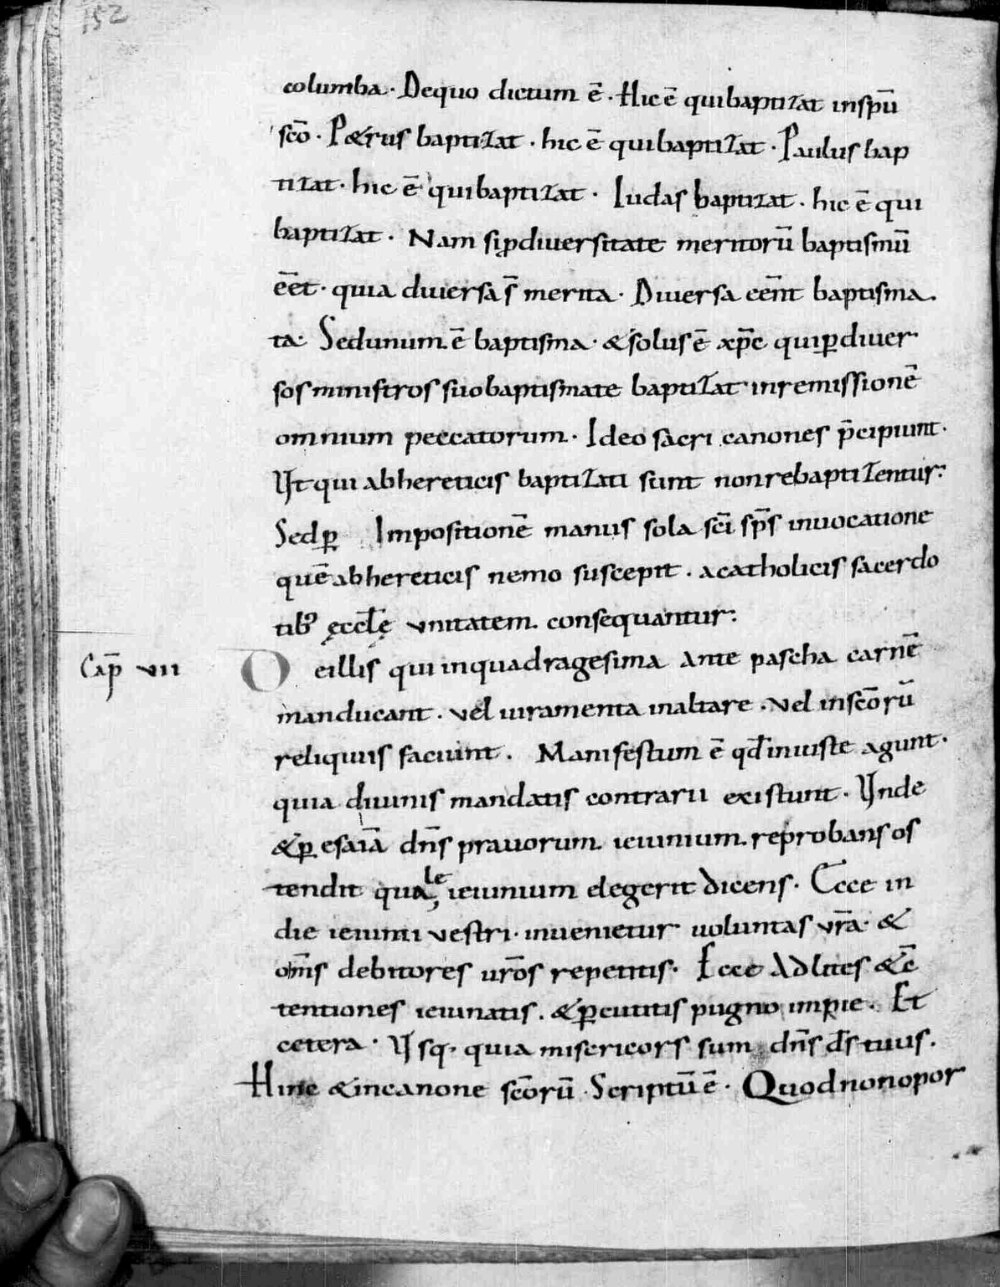 152
columba· Dequo dictum ē· Hic ē quibaptizat inspū
scō· Petrus baptizat· hic ē quibaptizat· Paulus bap
tizat· hic ē quibaptizat· Iudas baptizat· hic ē qui
baptizat· Nam siꝑdiuersitate meritorū baptismū
ēēt· quia diuersa s̄ merita· Diuersa eēnt baptisma
ta· Sedunum ē baptisma· &solus ē xp̄c quiꝑdiuer
sos ministros suobaptismate baptizat inremissionē
omnium peccatorum· Ideo sacri canones p̄cipiunt·
Vt qui abhereticis baptizati sunt nonrebaptizentur:
Sedꝑ Impositionē manus sola sc̄i sp̄s inuocatione
quē abhereticis nemo suscepit· acatholicis sacerdo
tib; ęccl̄ę vnitatem consequantur:
Cap̄ vii
Deillis qui inquadragesima ante pascha carnē
manducant· vel iuramenta inaltare· vel insc̄orū
reliquiis faciunt· Manifestum ē qđ iniuiste agunt·
quia diuinis mandatis contrarii existunt· Vnde
&ꝑ esaiā dn̄s prauorum ieiunium reprobans os
tendit quale ieiunium elegerit dicens· Ecce in
die ieiunii vestri· inuenietur uoluntas vr̄a· &
om̄s debitores ur̄os repetitis· Ecce Adlites &c̄
tentiones ieiunatis· &ꝑcutitis pugno impie· Et
cetera· Vsq· quia misericors sum dn̄s d̄s tuus·
Hinc &incanone sc̄orū Scriptū ē· Quodnonopor